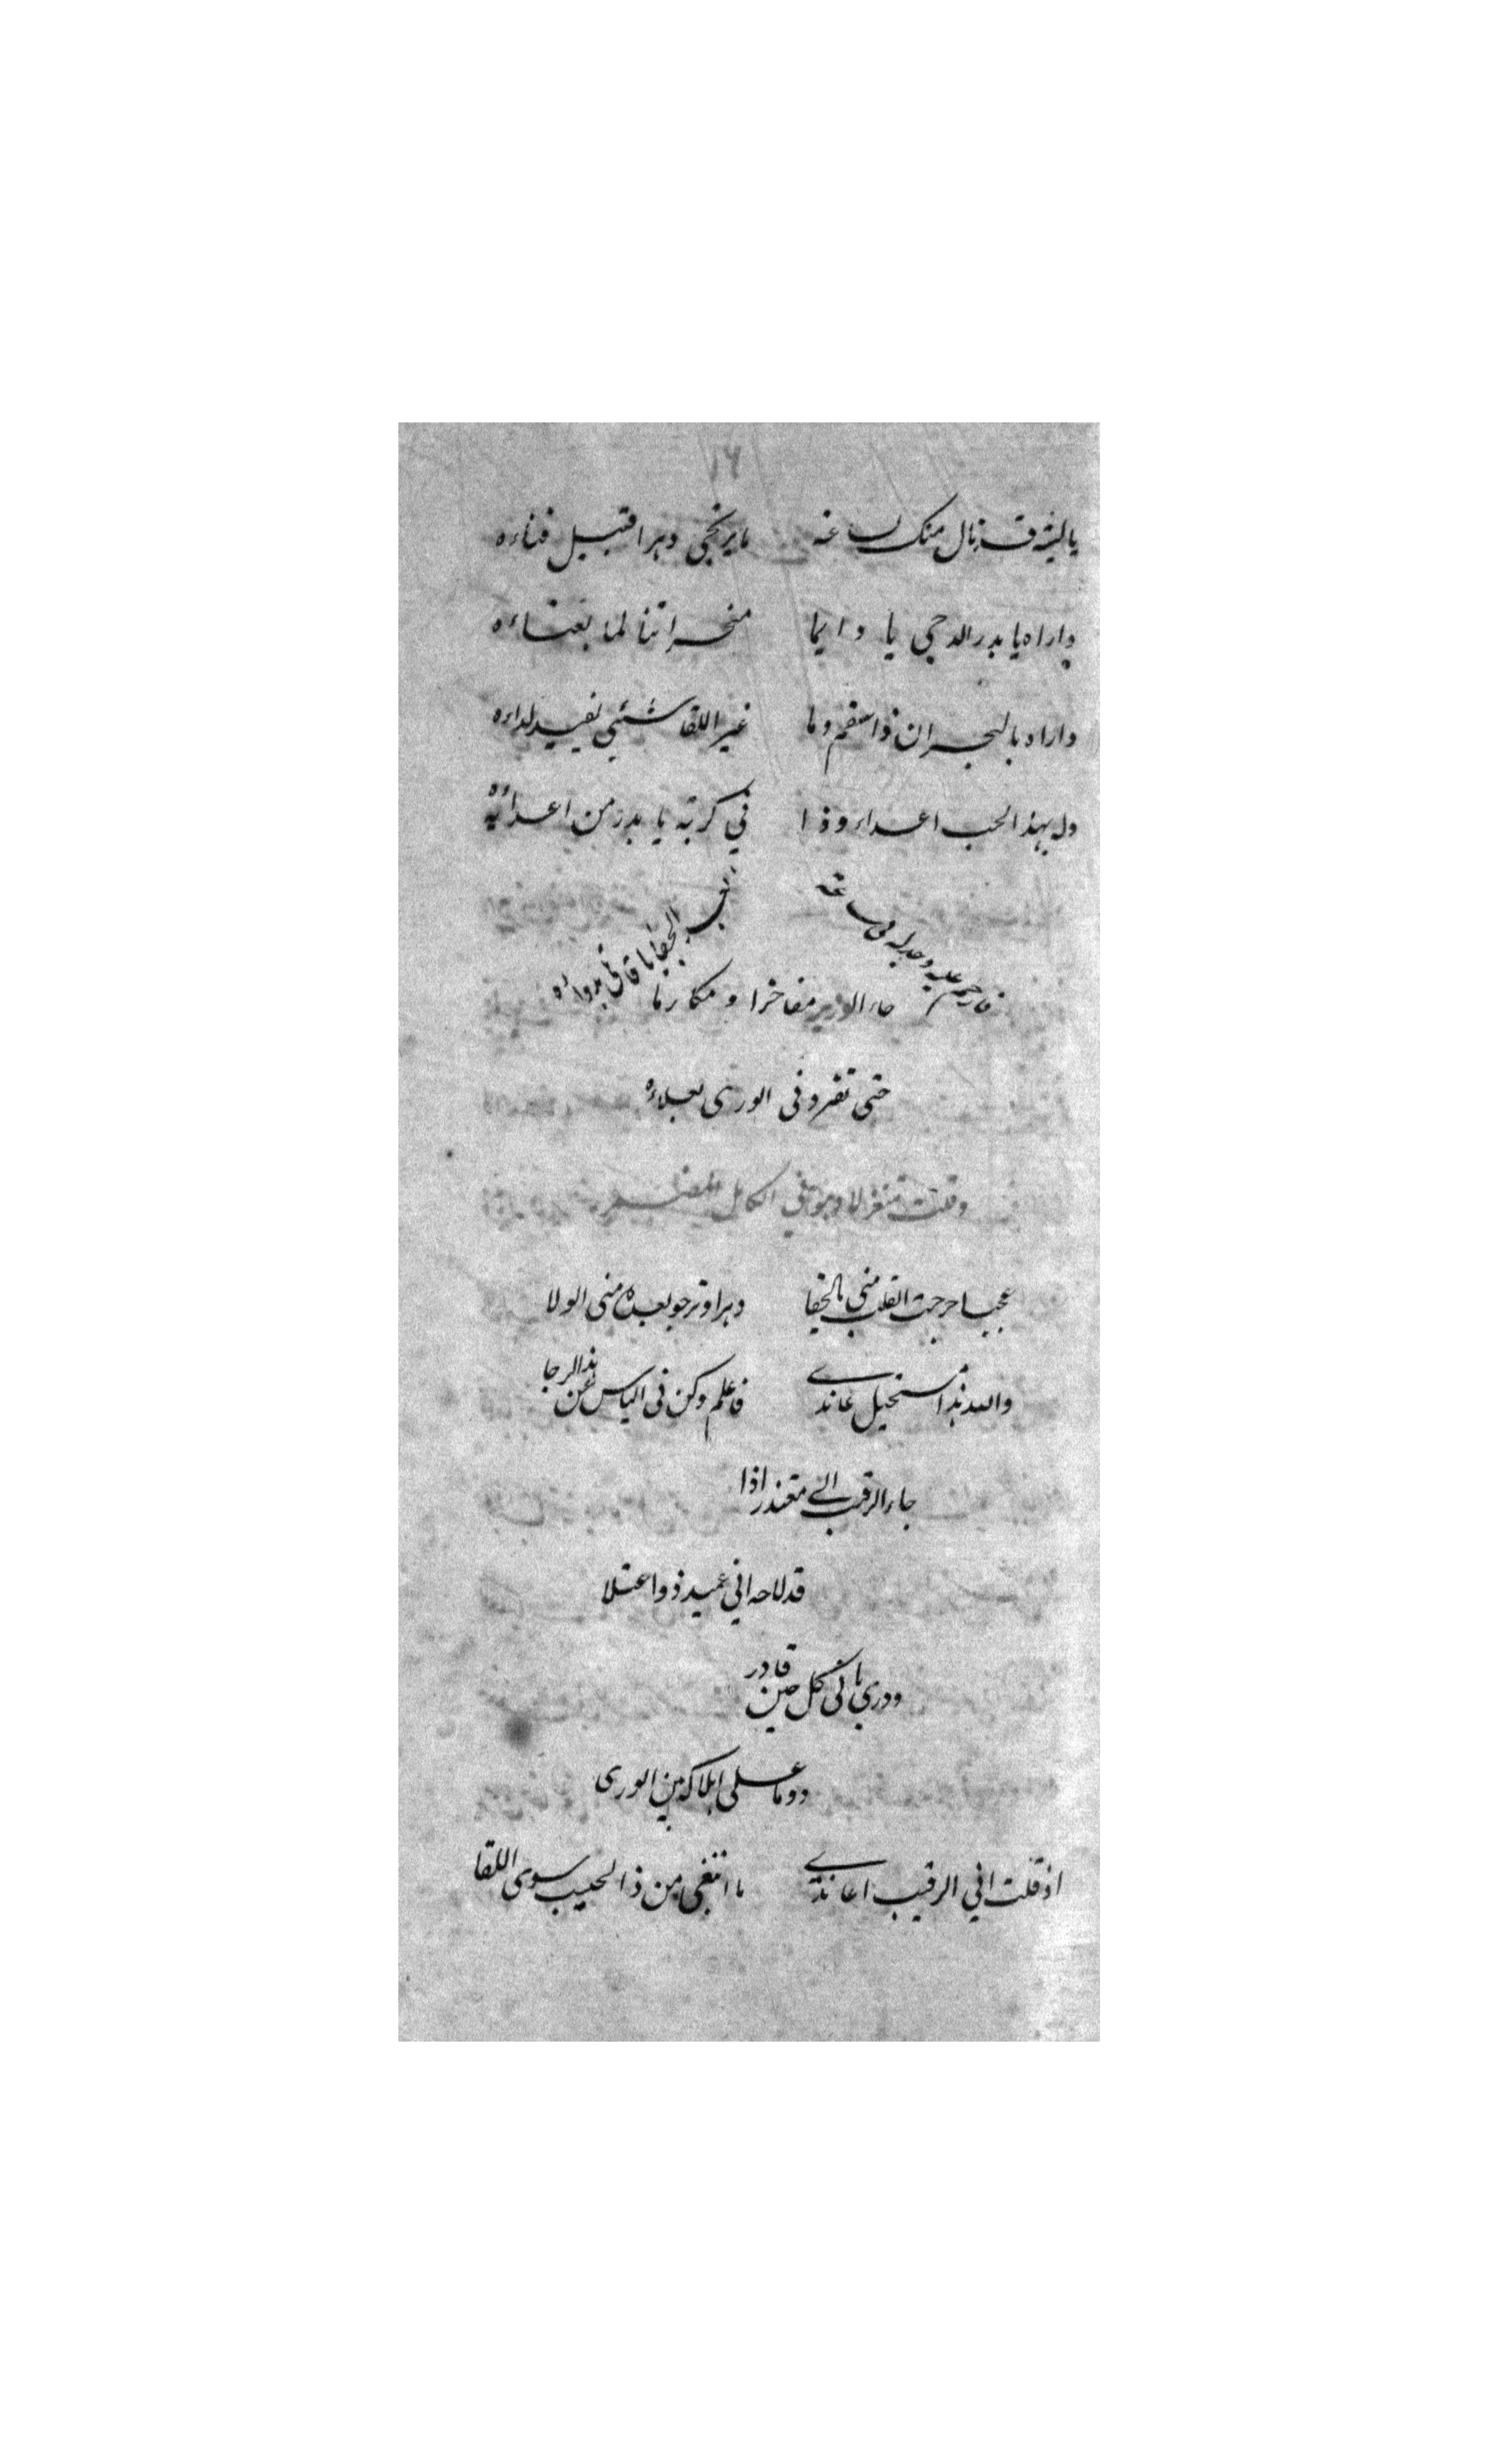 ١٦
ياليته قد نال منك لساعة ما يرتجي دهرا قبيل فناءه
واراه يا بدر الدجى يا دايما متحسرا تنا لما بعناءه
داراه بالهجران ذا سقم وما غير اللقا شئي يفيد لداءه
وله بهذا الحب اعداء وذا في كربة يا بدر من اعدائه
فارحم عليه وجد له في ساعة
الجفا يا قاتلي بدواءه
جاء الوزير مفاخرا ومكارما
حتى تفرد في الورى بعلاءه
وقلت متغزلا وهو في الكامل
عجبا جرحت القلب مني بالجفا دهرا وترجو بعده مني الولا
والله هذا مستحيل عاندى فاعلم وكن في الياس عن هذا الرجا
جاء الرقيب الي معتذرا اذا
قد لاحه اني عميد ذو اعتلا
ودرى باني كل حين قادر
دوما على اهلاكه بين الورى
اذ قلت اني الرقيب اعاندى ما ابتغي من ذا الحبيب سوى اللقا